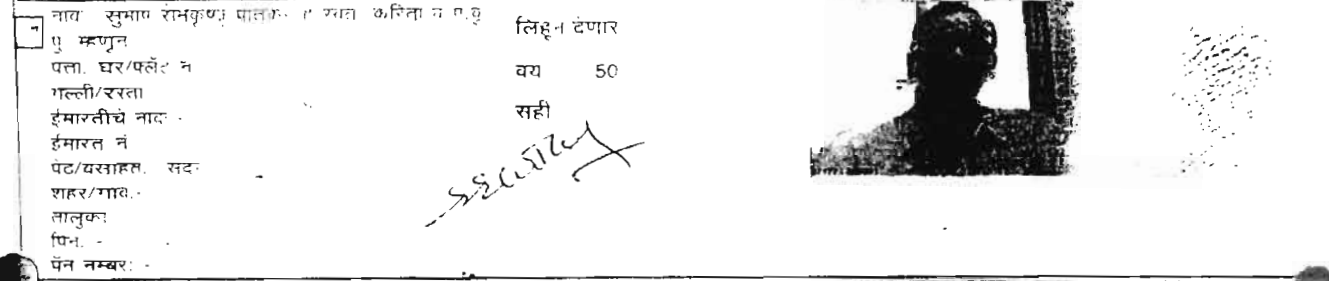 नाव सुभाष रामकृष्ण करिता
पु म्हणून
पत्ता. घर/फ्लॅट नं
गल्ली/रस्ता
ईमारतीचे नाव -
ईमारत नं
पेठ/वसाहत.
शहर/गाव.-
तालुका
पिन. -
पॅन नम्बर: -
लिहून देणार
वय 50
सही